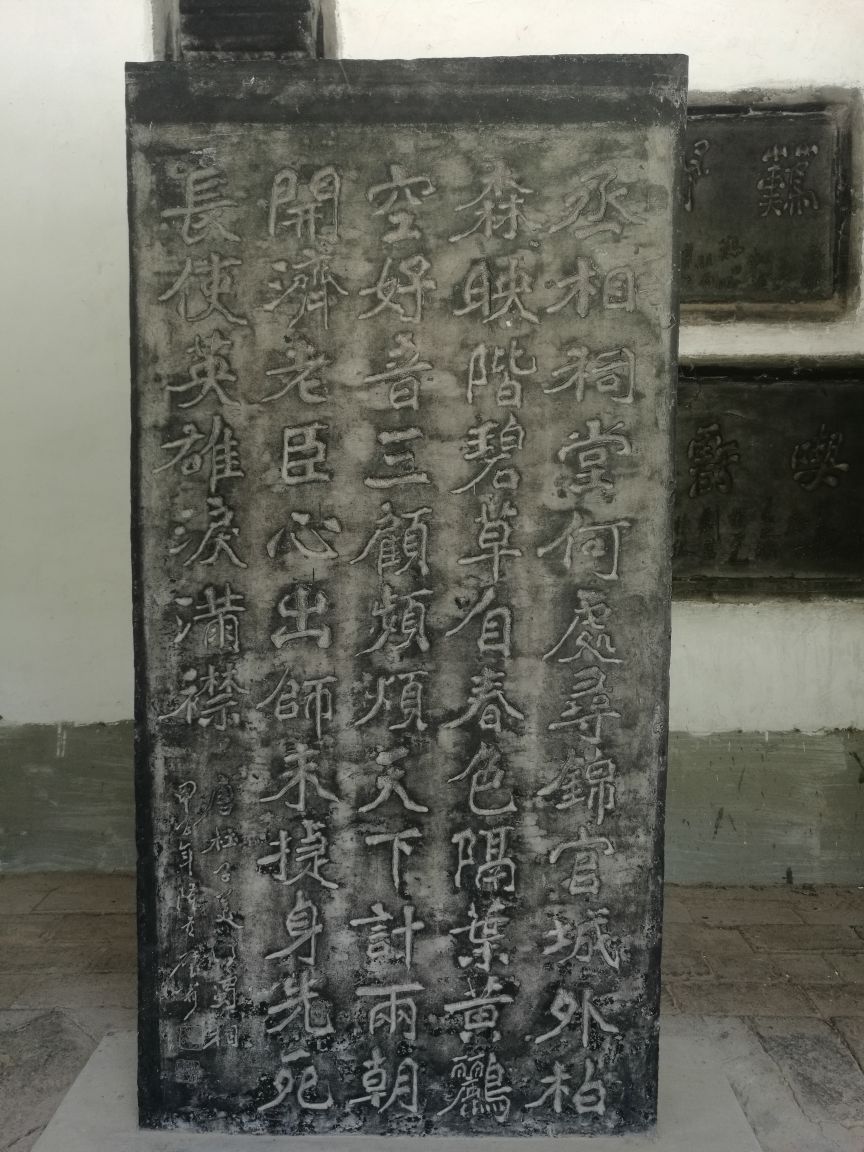 丞相祠堂何處尋錦官城外柏
森映階碧草自春色隔葉黃鸝
空好音三顧頻煩天下計兩朝
開濟老臣心出師未捷身先死
長使英雄淚滿襟
唐杜子美
難
爵